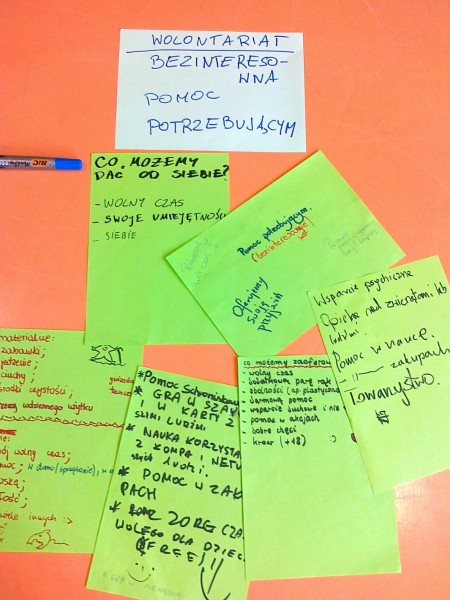 WOLONTARIAT
BEZINTERESO-
WNA
POMOC
POTRZEBUJĄCYM
BIC
CO MOŻEMY
DAĆ OD SIEBIE?
- WOLNY CZAS
- SWOJE UMIEJĘTNOŚCI
- SIEBIE
Pomoc potrzebującym.
(bezinteresowne)
Oferujemy
swoją
przyjaźń
Wsparcie psychiczne
Opieka nad zwierzętami lub
ludźmi.
Pomoc w nauce.
—"— zakupach
Towarzystwo.
materialne:
zabawki;
jedzenie;
ciuchy;
środki czystości;
codziennego użytku
wolny czas;
pomoc; w domu (sprzątanie),
wiele innych :>
*Pomoc Schroniskom
* GRA W SZACHY
I W KARTY Z
LUDŹMI
* NAUKA KORZYSTANIA
Z KOMPA I NETU
ludzi.
* POMOC W ZAKU
PACH
* ZORG CZAS
WOLEGO DLA DZIECI
(FREE)!!
co możemy zaoferować
- wolny czas
- dodatkową parę rąk
- zdolności (np plastyczne
- darmową pomoc
- wsparcie duchowe i nie
- pomoc w akcjach
- dobre chęci
- krew (+18)